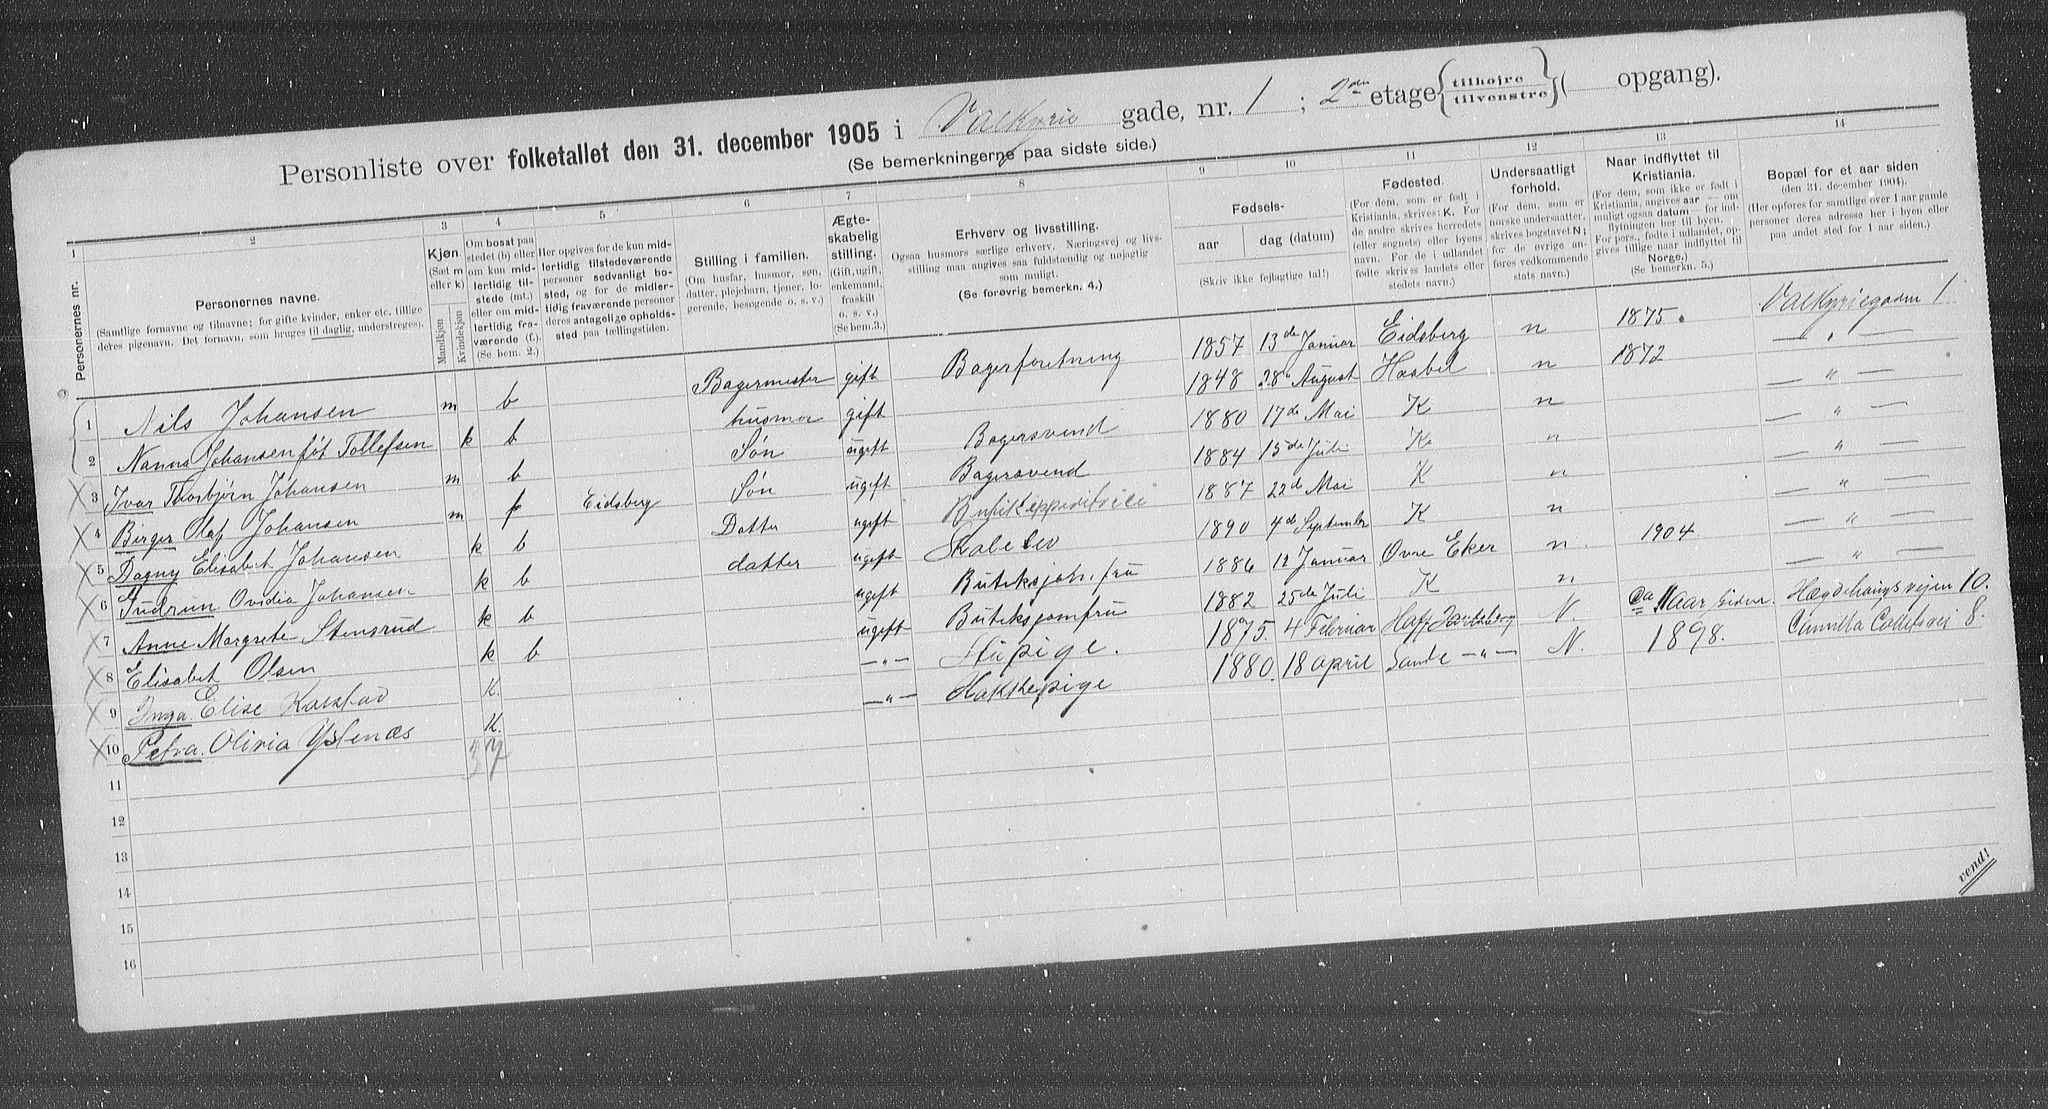 Personliste over folketallet den 31. december 1905 i Valkyrie gade, nr. 1 ; 2den etage { tilhøjre / tilvenstre } ( opgang).
(Se bemerkningerne paa sidste side.)
1 2 3 4 5 6 7 8 9 10 11 12 13 14
Personernes nr.
Personernes navne.
(Samtlige fornavne og tilnavne; for gifte kvinder, enker etc. tillige
deres pigenavn. Det fornavn, som bruges til daglig, understreges).
Kjøn.
(Sæt m
eller k)
Mandkjøn
Kvindekjøn
Om bosat paa
stedet (b) eller
om kun mid-
lertidig til-
stede (mt.)
eller om mid-
lertidig fra-
værende (f.).
(Se bem. 2.)
Her opgives for de kun mid-
lertidig tilstedeværende
personer sedvanligt bo-
sted, og for de midler-
tidig fraværende personer
deres antagelige opholds-
sted paa tællingstiden.
Stilling i familien.
(Om husfar, husmor, søn,
datter, plejebarn, tjener, lo-
gerende, besøgende o. s. v.)
Ægte-
skabelig
stilling.
(Gift, ugift,
enkemand,
fraskilt
o. s. v.)
(Se bem.3.)
Erhverv og livsstilling.
(Ogsaa husmors særlige erhverv. Næringsvej og livs-
stilling maa angives saa fuldstændig og nøjagtig
som muligt.
(Se forøvrig bemerkn. 4.)
Fødsels-
aar
dag (datum)
(Skriv ikke fejlagtige tal!)
Fødested.
(For dem, som er født i
Kristiania, skrives: K. For
de andre skrives herredets
(eller sognets) eller byens
navn. For de i udlandet
fødte skrives landets eller
stedets navn.)
Undersaatligt
forhold.
(For dem, som er
norske undersaatter,
skrives bogstavet N;
for de øvrige an-
føres vedkommende
stats navn.)
Naar indflyttet til
Kristiania.
(For dem, som ikke er født i
Kristiania, angives aar — om
muligt ogsaa datum — for ind-
flytningen her til byen.
For pers., fødte i udlandet, op-
gives tillige naar indflyttet til
Norge.)
(Se bemerkn. 5.)
Bopæl for et aar siden
(den 31. december 1904).
(Her opføres for samtlige over 1 aar gamle
personer deres adresse her i byen eller
paa andet sted for 1 aar siden.)
1 Nils Johansen m b Bagermester gift Bagerforretning 1857 13de Januar Eidsberg n 1875. Valkyriegaden 1
2 Nanna Johansen føt Tollefsen k b husmor gift 1848 28 August Haabøl n 1872 — " —
X 3 Ivar Thorbjørn Johansen m b Søn ugift Bagersvend 1880 17de Mai K n — " —
X 4 Birger Olaf Johansen m f Eidsberg Søn ugift Bagersvend 1884 15de Juli K. n — " —
X 5 Dagny Elisabet Johansen k b Datter ugift 1887 22de Mai K n — " —
X 6 Gudrun Ovidia Johansen k b datter ugift Skoleelev 1890 4de September K n — " —
X 7 Anne Margrete Stensrud k b ugift Butiksjomfru 1886 12 Januar Øvre Eker n. 1904. — " —
X 8 Elisabet Olsen k b ugift Butiksjomfru 1882 25de Juli K n — " —
X 9 Inga Elise K. — " — Stupige. 1875. 4 Februar Hoff Jarlsberg N. Hægdehaugsvejen 10.
X 10 Petra Olivia K. — " — Kokkepige 1880. 18 april Sande — " — N. 1898. Camilla Colletsvei 8.
3 7
11
12
13
14
15
16
vend!